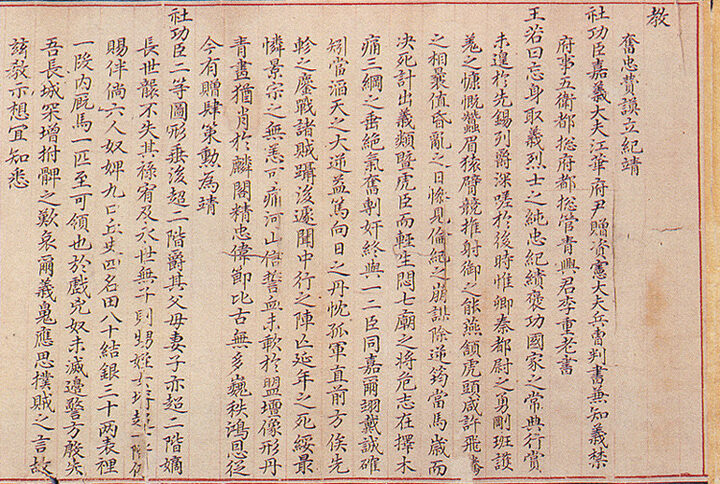 教
奮忠贊謨立紀靖
社功臣嘉義大夫江華府尹贈資憲大夫兵曺判書兼知義禁
府事五衛都摠府都摠管青興君李重老書
王若曰忘身取義烈士之純忠紀績褒功國家之常典行賞
未遑於先錫列爵深嗟於後時惟卿秦都尉之勇剛班護
羗之慷慨蠶眉猿臂競推射御之能燕頷虎頭咸許飛騰
之相最值昏亂之日慘見倫紀之崩誤除逆筠當馬嵗而
決死計出義類暨虎臣而輕生悶七廟之將危志在擇木
痛三綱之垂絶氣奮剸奸終與一二臣同嘉爾翊戴誠確
矧當滔天之大逆益篤向日之丹忱孤軍直前方俟先
軫之鏖戰諸賊躡後遽聞中行之陣亡延年之死綏最
憐景宗之無恙可痛河山信誓血未乾於盟壇像形丹
青畫猶肖於麟閣精忠偉節比古無多巍秩鴻恩從
今有贈肆策勳爲靖
社功臣二等圖形垂後超二階爵其父母妻子亦超二階嫡
長世襲不失其祿宥及永世無子則甥姪女壻超一階仍
賜伴倘六人奴婢九口丘史四名田八十結銀三十两表裡
一段内厩馬一匹至可領也於戲兇奴未滅邊警方殷失
吾長城罙增拊髀之歎哀爾義鬼應思撲賊之言故
玆教示想宜知悉